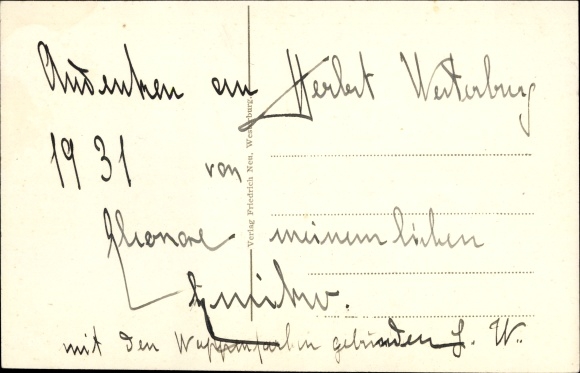 Andenken an Herbst Westerburg
1931 von
Eleonore meinem lieben
mit den Wappenfarben gebunden L. W.
Verlag Friedrich Neu, Westerburg